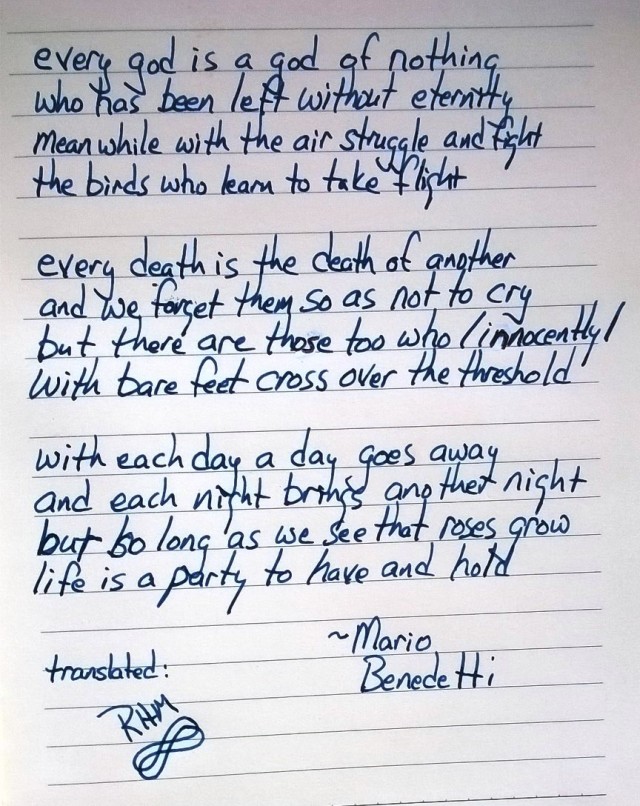 every god is a god of nothing
who has been left without eternitty
meanwhile with the air struggle and fight
the birds who learn to take flight
every death is the death of another
and we forget them so as not to cry
but there are those too who / innocently /
with bare feet cross over the threshold
with each day a day goes away
and each night brings another night
but so long as we see that roses grow
life is a party to have and hold
~Mario
Benedetti
translated:
RHM